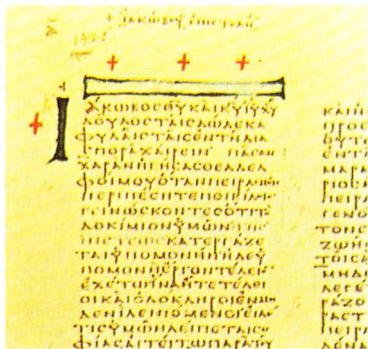 + Ἰακώβου ἐπιστολή
ΙΑΚΩΒΟϹΘΥΚΑΙΚΥΙΥΧΥ
ΔΟΥΛΟϹΤΑΙϹΔΩΔΕΚΑ
ΦΥΛΑΙϹΤΑΙϹΕΝΤΗΔΙΑ
ϹΠΟΡΑΧΑΙΡΕΙΝ ΠΑϹΑΝ
ΧΑΡΑΝΗΓΗϹΑϹΘΕΑΔΕΛ
ΦΟΙΜΟΥΟΤΑΝΠΕΙΡΑϹΜΟΙϹ
ΠΕΡΙΠΕϹΗΤΕΠΟΙΚΙΛΟΙϹ
ΓΕΙΝΩϹΚΟΝΤΕϹΟΤΙΤΟ
ΔΟΚΙΜΙΟΝΥΜΩΝΤΗϹ
ΠΙϹΤΕΩϹΚΑΤΕΡΓΑΖΕ
ΤΑΙΫΠΟΜΟΝΗΝΗΔΕΫ
ΠΟΜΟΝΗΕΡΓΟΝΤΕΛΕΙΟΝ
ΕΧΕΤΩΪΝΑΗΤΕΤΕΛΕΙ
ΟΙΚΑΙΟΛΟΚΛΗΡΟΙΕΝΜΗ
ΔΕΝΙΛΕΙΠΟΜΕΝΟΙΕΙΔΕ
ΤΙϹΥΜΩΝΛΕΙΠΕΤΑΙϹΟ
ΦΙΑϹΑΙΤΕΙΤΩΠΑΡΑΤΟΥ
ΚΑΙΗ
ΠΡΟϹ
ΟΥΤΩ
ΕΝΤΑ
ΜΑΡΑ
ΠΕΙΡΑ
ΓΕΝΟ
ΤΟΝϹ
ΖΩΗϹ
ΤΟΙϹΑ
ΜΗΔΕ
ΛΕΓΕ
ΡΑΖΟ
ΡΑϹΤ
ΠΕΙΡ